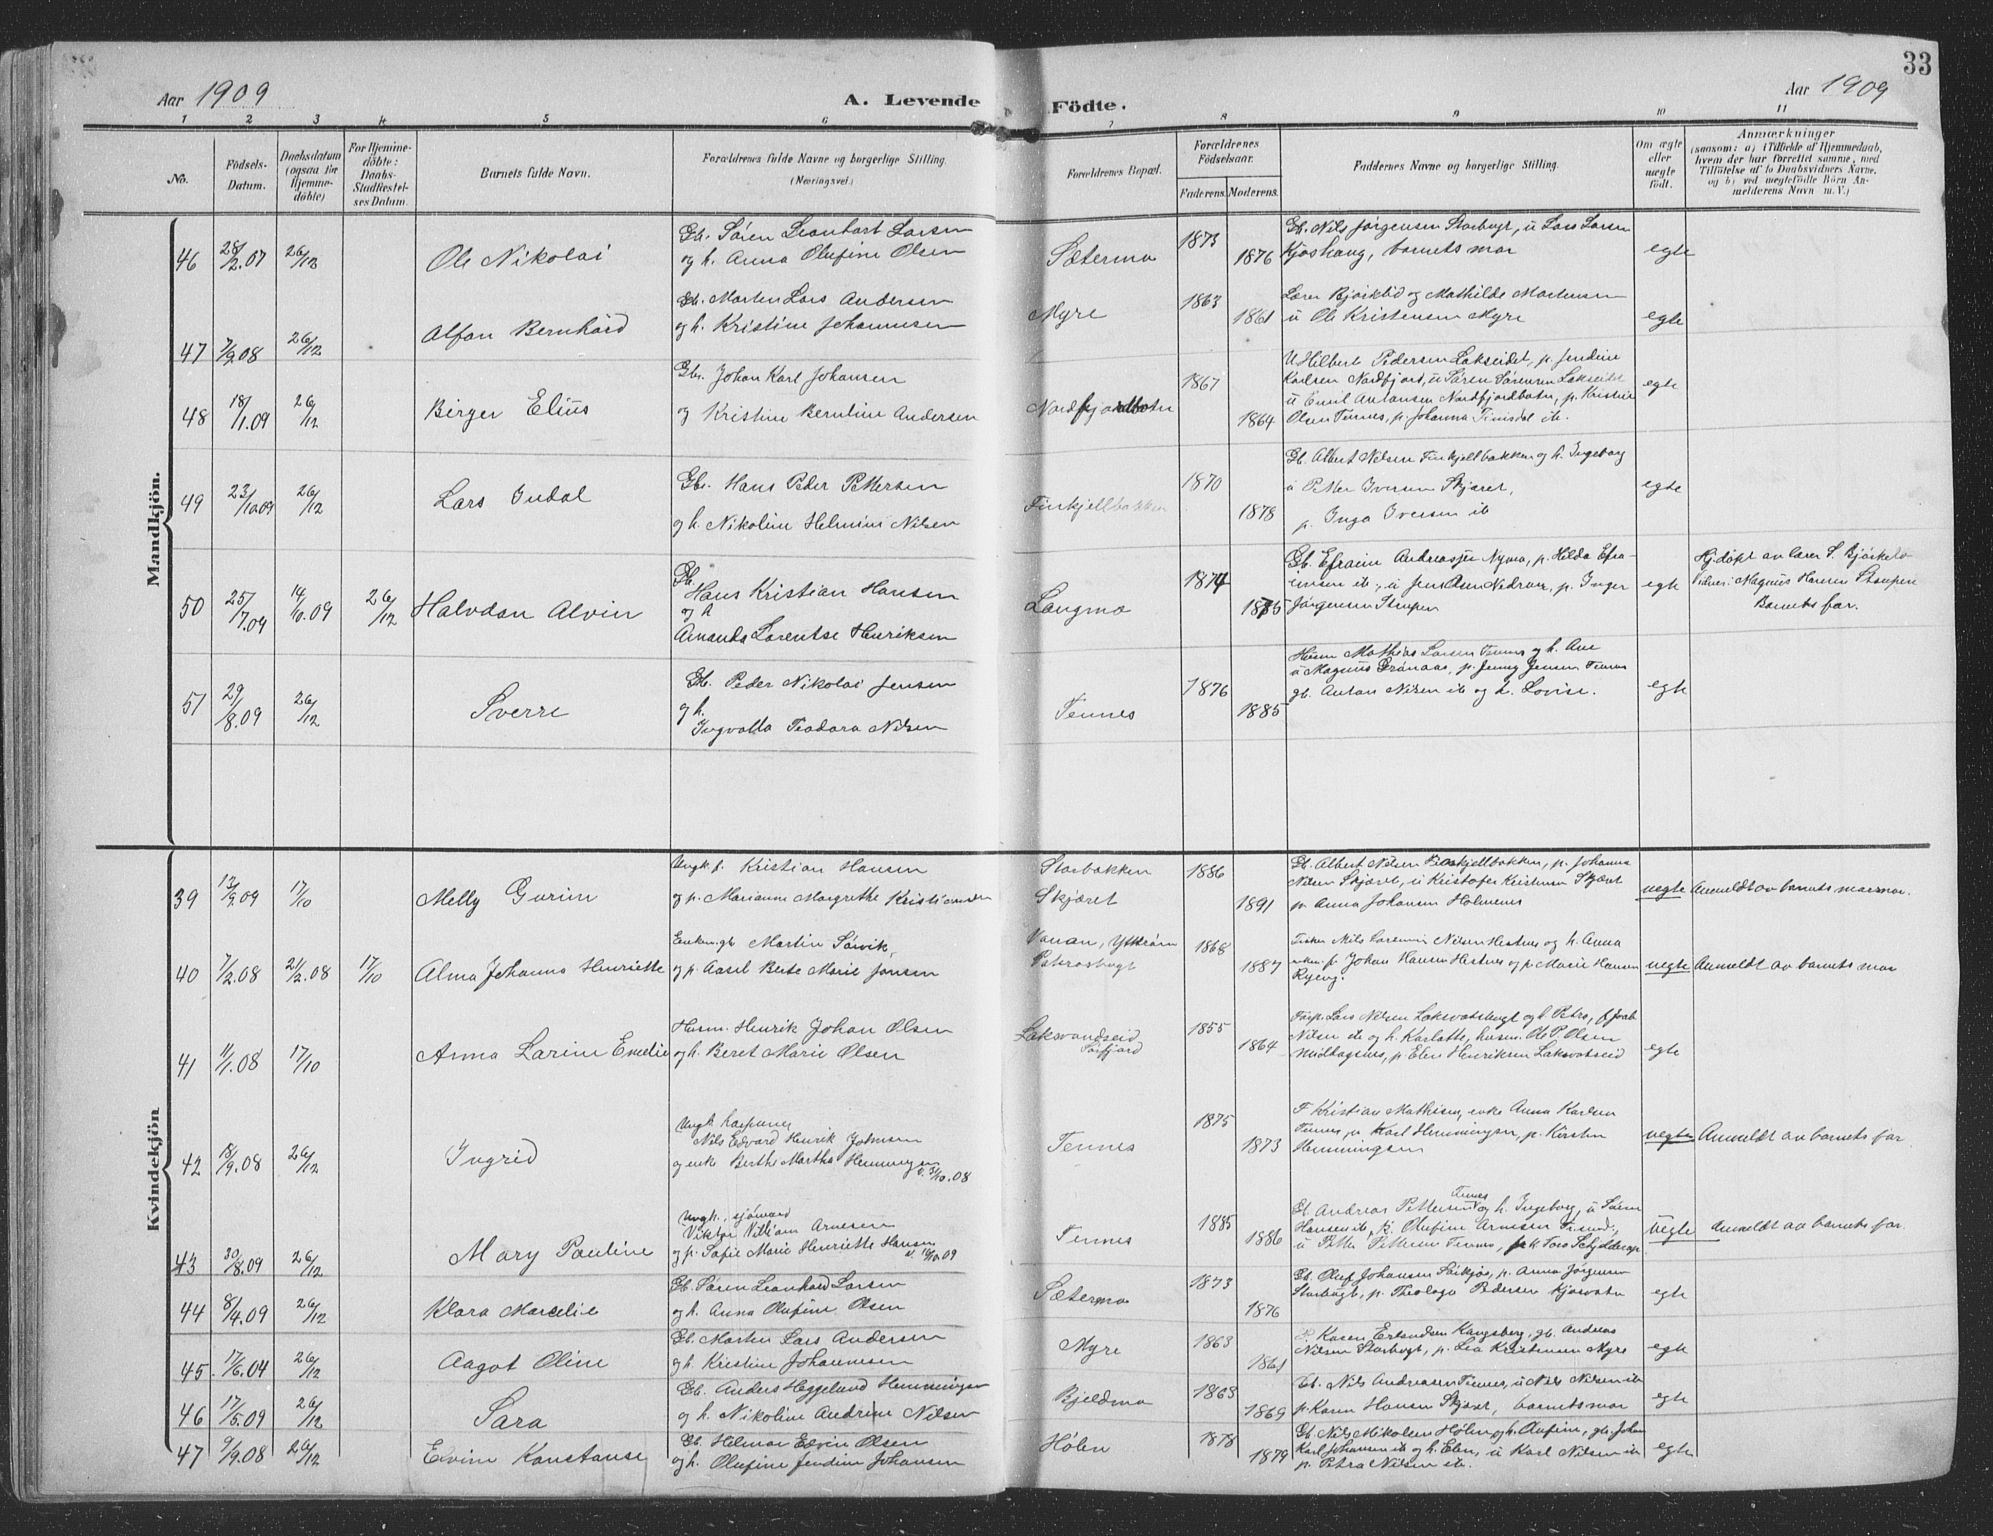 33
Aar 1909
A. Levende Födte.
Aar 1909
1 2 3 4 5 6 7 8 9 10 11
No.
Födsels-Datum.
Daabsdatum (ogsaa for Hjemme-döbte)
For Hjemme-döbte: Daabs-Stadfæstel-ses Datum.
Barnets fulde Navn.
Forældrenes fulde Navne og borgerlige Stilling.
(Næringsvei.)
Forældrenes Bopæl.
Forældrenes Födselsaar.
Faderens. Moderens.
Faddernes Navne og borgerlige Stilling.
Om ægte eller uægte födt.
Anmærkninger
(saasom: a) i Tilfælde af Hjemmedaab,
hvem der har forrettet samme, med
Tilföielse af to Daabsvidners Navne,
og b) ved uegtefödte Börn An-
melderens Navn m. V.)
Mandkjön.
46 28/2.07 26/12 Ole Nikolai
Gb. Sören Leonhart Larsen
og h. Anna Olufine Olsen
Sætermo 1873 1876
Gb. Nils Jörgensen Storbugt, u Lars Larsen
Kjoshaug, barnets mor
egte
47 7/9.08 26/12 Alfon Bernhard
Gb. Morten Lars Andersen
og h. Kristine Johannesen
Myre 1863 1861
Lærer Björklid og Mathilde Mortensen
u Ole Kristensen Myre
egte
48 18/1.09 26/12 Birger Elius
Gbr. Johan Karl Johansen
og Kristine Berntine Andersen
Nordfjordbotn 1867 1864
U Hilbert Pedersen Lakseidet, p. Jendine
Karlsen Nordfjord, u Sören Sörensen Lakseidet
u Emil Antonsen Nordfjordbotn, p. Kristine
Olsen Tennes, p. Johanna
egte
49 23/10 09 26/12 Lars Indal
Gbr. Hans Peder Pettersen
og h. Nikoline Helmine Nilsen
Finkjellbakken 1870 1878
Gb. Albert Nilsen Finkjellbakken og h. Ingeborg
u Petter Iversen Skjæret,
p. Inga Iversen ib
egte
50 25/7.09 14/10.09 26/12 Halvdan Alvin
Gb.
Hans Kristian Hansen
og h
Amanda Lorentse Henriksen
Langmo 1874 1885
Gb. Efraim Andreassen Nymo, p. Hilda Efra-
imsen ib., u Jens Olsen Nedrevær, p. Inger
Jörgensen Stupen
egte
Hj.döpt av lærer S. Björkeli
Vidner: Magnus Hansen Stupen
Barnets far.
51 29/8.09 26/12 Sverre
Gb. Peder Nikolai Jensen
og h.
Ingvalda Teodora Nilsen
Tennes 1876 1885
Husm Mathias Larsen Tennes og h. Ane
u Magnus Grönaas, p. Jenny Jensen Tennes
gb. Anton Nilsen ib og h. Lovise.
egte
Kvindekjön
39 12/9.09 17/10 Melly Gurine
Ungk. f. Kristian Hansen
og p. Marianne Margrethe Kristiansen
Storbakken
Skjæret 1886 1891
Gb. Albert Nilsen Finkjellbakken, p. Johanna
Nilsen Skjæret, u Kristofer Kristensen Skjæret
p. Anna Johansen Holmenes
uegte Anmeldt av barnets mormor.
40 7/2.08 21/2.08 17/10 Alma Johanna Henriette
Enkem. gb. Martin Sörvik,
og p. Aasel Berte Marie Jonsen
Vanan, Ytterön
Petersbugt 1868 1887
Fisker Nils Nilsen Hestnes og h. Anna
p Johan Hansen Hestnes og p. Marie Hansen
uegte Anmeldt av barnets mor
41 11/1.08 17/10 Anna Larine Emelie
Husm. Henrik Johan Olsen
og h. Beret Marie Olsen
Laksvandseid
Sörfjord 1855 1864
Lars Nilsen Laksvatsbugt og h Petra,
Nilsen ib og h. Karlotte, husm. Ole P. Olsen
p. Elen Henriksen Laksvatseid
egte
42 18/9.08 26/12 Ingrid
Ungk.
Nils Edvard Henrik Johnsen
og enke Berthe Martha Hemmingsen
v. 31/10.08
Tennes 1875 1873
F Kristian Mathisen, enke Anna Karlsen
Tennes, u Karl Hemmingsen, p. Kirsten
Hemmingsen
uegte Anmeldt av barnets far
43 30/8.09 26/12 Mary Pauline
Ungk., sjömand
Viktor William Arnesen
og p. Sofie Marie Henriette Hansen
Tennes 1885 1886
Gb. Andreas Pettersen Tennes og h. Ingeborg, u Sören
Hansen ib, p. Olufine Arnesen
u Petter Pettersen Tennes,
uegte Anmeldt av barnets far.
44 8/4.09 26/12 Klara Marcelie
Gb. Sören Leonhard Larsen
og h. Anna Olufine Olsen
Sætermo 1873 1876
Gb. Oluf Johansen p. Anna Jörgensen
Storbugt, p. Theologa Pedersen Kjosvatn
egte
45 17/6.04 26/12 Aagot Oline
Gb. Morten Lars Andersen
og h. Kristine Johannesen
Myre 1863 1861
P. Karen Erlandsen Kongsberg, gb. Andreas
Nilsen Storbugt, p. Lea Kristensen Myre
egte
46 17/5.09 26/12 Sara
Gb. Anders Heggelund Hemmingsen
og h. Nikoline Andrine Nilsen
Bjeldmo 1863 1869
Gb. Nils Andreasen Tennes, u Nils Nilsen ib
p. Karen Hansen Skjæret, barnets mor
egte
47 9/9.08 26/12 Elvine Konstanse
Gb. Hilmar Edvin Olsen
og h. Olufine Jendine Johansen
Holen 1878 1879
Gb. Nils Mikolsen Holen og h. Olufine, gb. Johan
Karl Johansen ib og h. Elen, u Karl Nilsen ib
p. Petra Nilsen ib.
egte